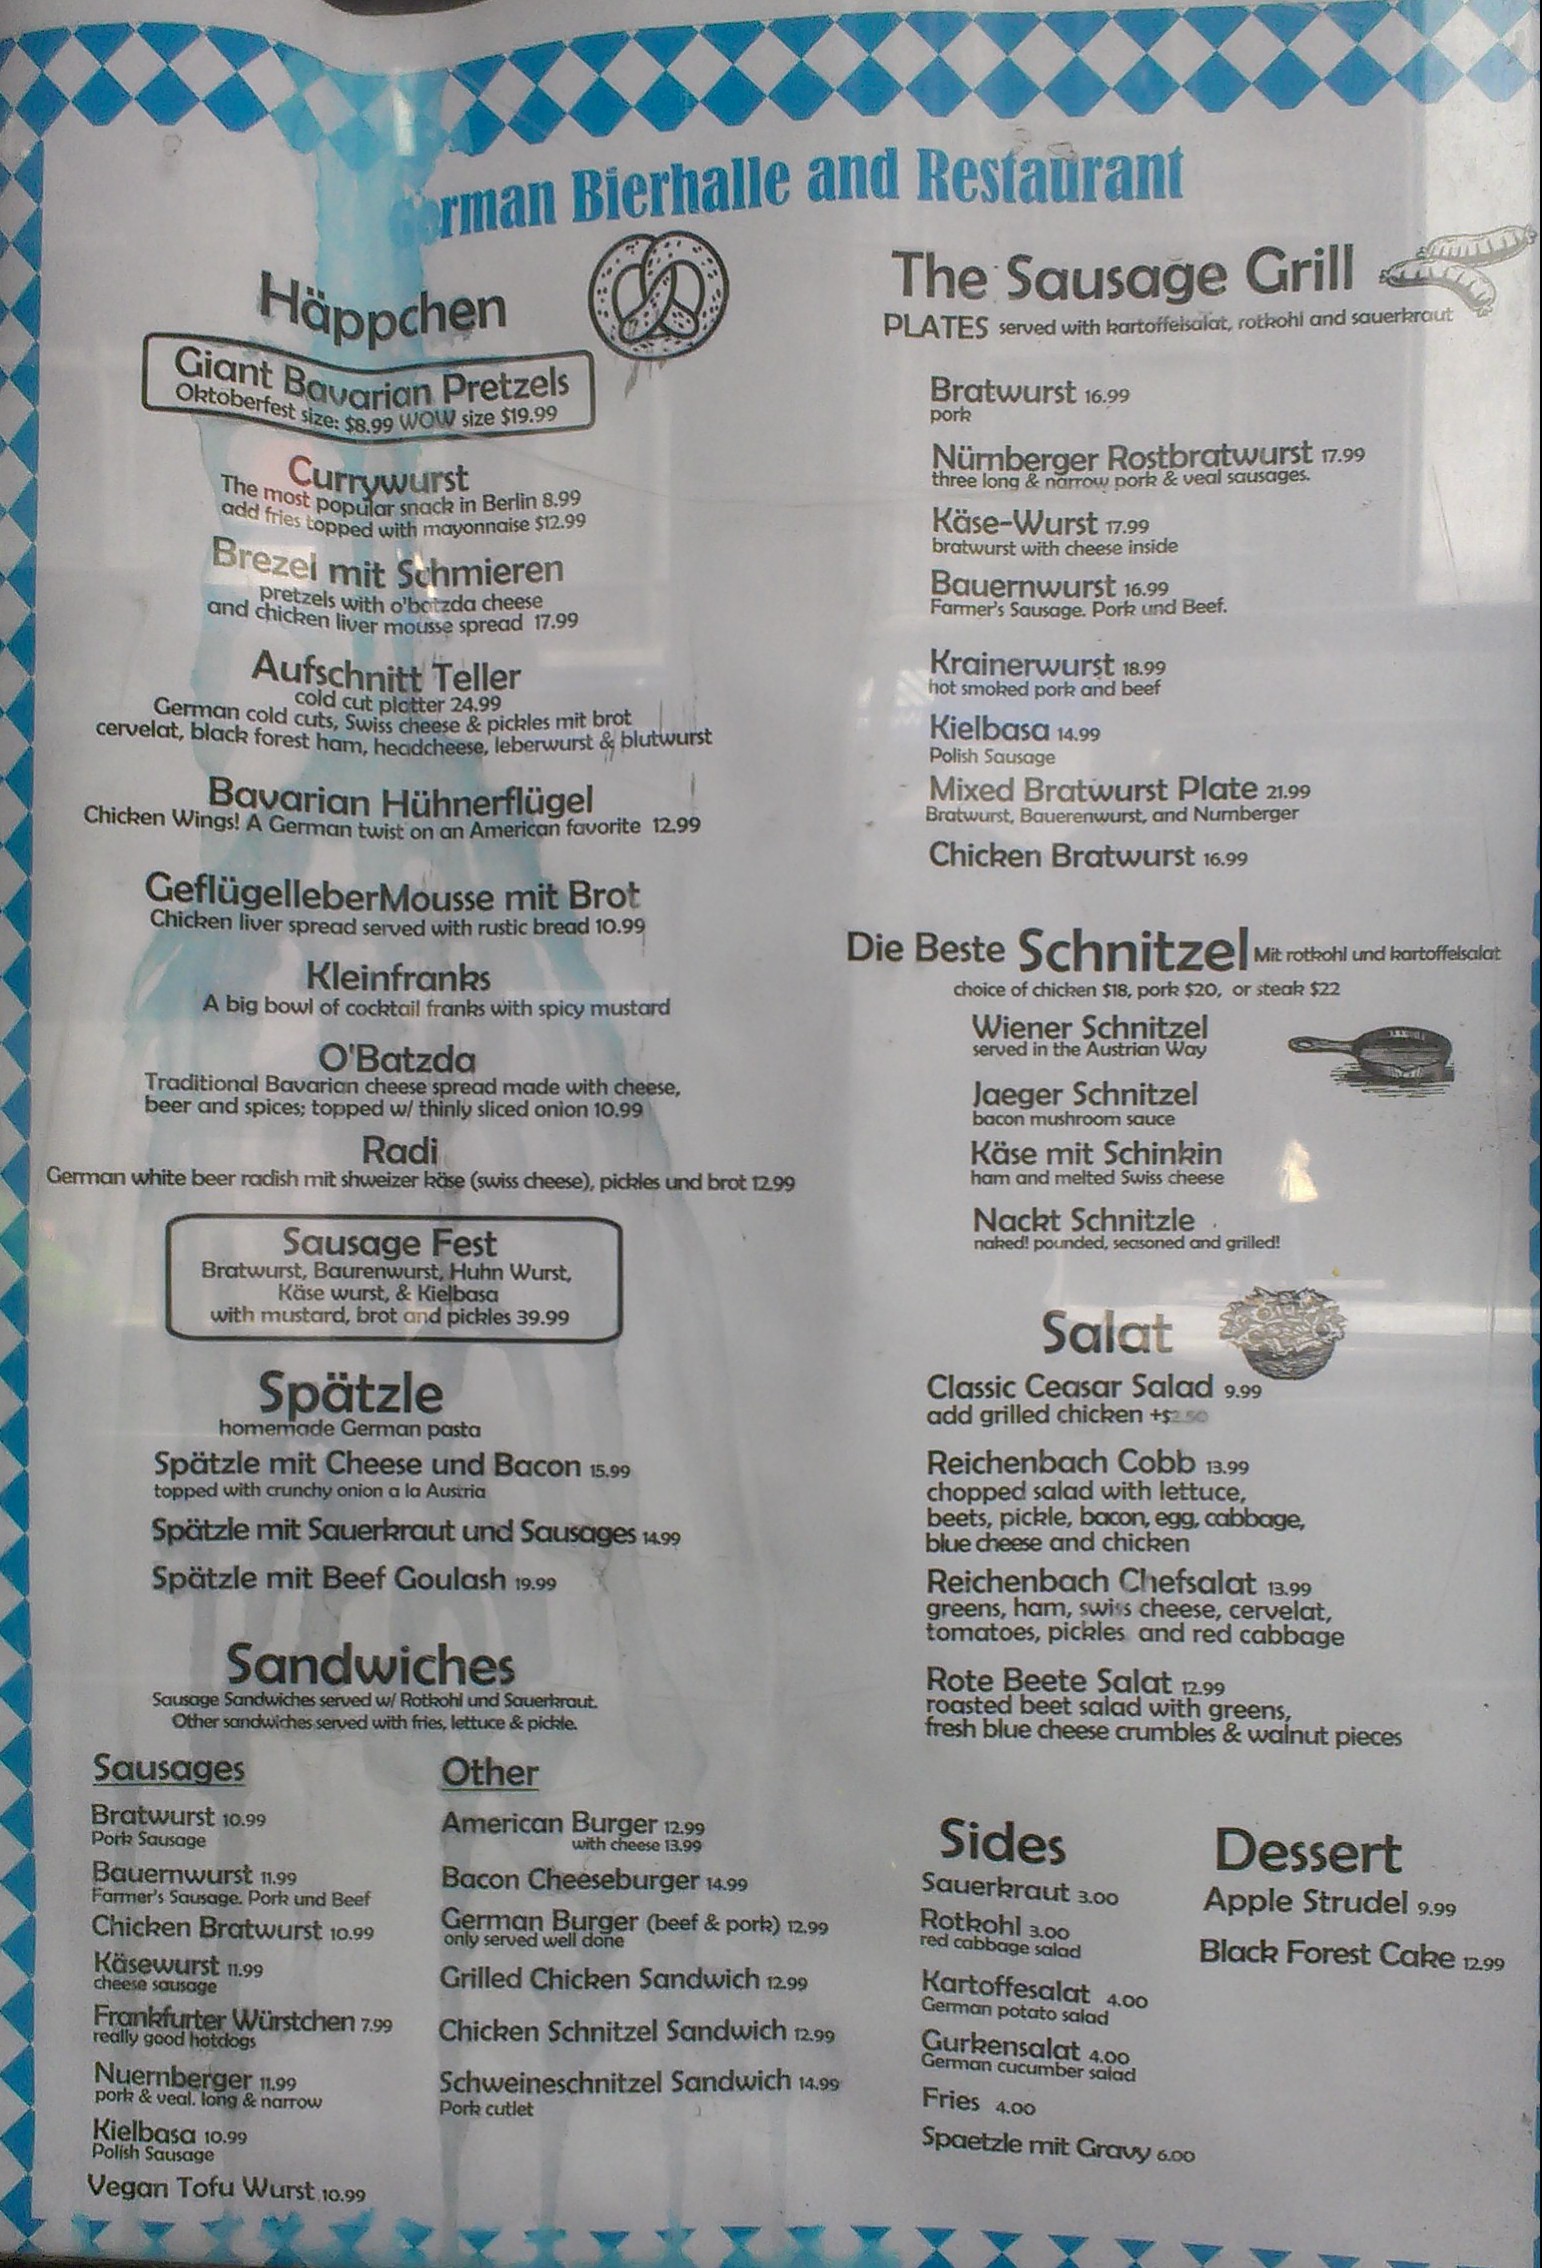 German Bierhalle and Restaurant
Häppchen
Giant Bavarian Pretzels
Oktoberfest size: $8.99 WOW size $19.99
Currywurst
The most popular snack in Berlin 8.99
add fries topped with mayonnaise $12.99
Brezel mit Schmieren
pretzels with o'batzda cheese
and chicken liver mousse spread 17.99
Aufschnitt Teller
cold cut platter 24.99
German cold cuts, Swiss cheese & pickles mit brot
cervelat, black forest ham, headcheese, leberwurst & blutwurst
Bavarian Hühnerflügel
Chicken Wings! A German twist on an American favorite 12.99
GeflügelleberMousse mit Brot
Chicken liver spread served with rustic bread 10.99
Kleinfranks
A big bowl of cocktail franks with spicy mustard
O'Batzda
Traditional Bavarian cheese spread made with cheese,
beer and spices; topped w/ thinly sliced onion 10.99
Radi
German white beer radish mit shweizer käse (swiss cheese), pickles und brot 12.99
Sausage Fest
Bratwurst, Baurenwurst, Huhn Wurst,
Käse wurst, & Kielbasa
with mustard, brot and pickles 39.99
Spätzle
homemade German pasta
Spätzle mit Cheese und Bacon 15.99
topped with crunchy onion a la Austria
Spätzle mit Sauerkraut und Sausages 14.99
Spätzle mit Beef Goulash 19.99
Sandwiches
Sausage Sandwiches served w/ Rotkohl und Sauerkraut.
Other sandwiches served with fries, lettuce & pickle.
Sausages
Bratwurst 10.99
Pork Sausage
Bauernwurst 11.99
Farmer's Sausage. Pork und Beef
Chicken Bratwurst 10.99
Käsewurst 11.99
cheese sausage
Frankfurter Würstchen 7.99
really good hotdogs
Nuernberger 11.99
pork & veal. long & narrow
Kielbasa 10.99
Polish Sausage
Vegan Tofu Wurst 10.99
Other
American Burger 12.99
with cheese 13.99
Bacon Cheeseburger 14.99
German Burger (beef & pork) 12.99
only served well done
Grilled Chicken Sandwich 12.99
Chicken Schnitzel Sandwich 12.99
Schweineschnitzel Sandwich 14.99
Pork cutlet
The Sausage Grill
PLATES served with kartoffelsalat, rotkohl and sauerkraut
Bratwurst 16.99
pork
Nürnberger Rostbratwurst 17.99
three long & narrow pork & veal sausages.
Käse-Wurst 17.99
bratwurst with cheese inside
Bauernwurst 16.99
Farmer's Sausage. Pork und Beef.
Krainerwurst 18.99
hot smoked pork and beef
Kielbasa 14.99
Polish Sausage
Mixed Bratwurst Plate 21.99
Bratwurst, Bauerenwurst, and Nurnberger
Chicken Bratwurst 16.99
Die Beste Schnitzel Mit rotkohl und kartoffelsalat
choice of chicken $18, pork $20, or steak $22
Wiener Schnitzel
served in the Austrian Way
Jaeger Schnitzel
bacon mushroom sauce
Käse mit Schinkin
ham and melted Swiss cheese
Nackt Schnitzle
naked! pounded, seasoned and grilled!
Salat
Classic Ceasar Salad 9.99
add grilled chicken +$2.50
Reichenbach Cobb 13.99
chopped salad with lettuce,
beets, pickle, bacon, egg, cabbage,
blue cheese and chicken
Reichenbach Chefsalat 13.99
greens, ham, swiss cheese, cervelat,
tomatoes, pickles and red cabbage
Rote Beete Salat 12.99
roasted beet salad with greens,
fresh blue cheese crumbles & walnut pieces
Sides
Sauerkraut 3.00
Rotkohl 3.00
red cabbage salad
Kartoffesalat 4.00
German potato salad
Gurkensalat 4.00
German cucumber salad
Fries 4.00
Spaetzle mit Gravy 6.00
Dessert
Apple Strudel 9.99
Black Forest Cake 12.99